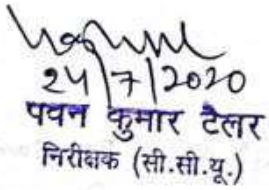 24/7/2020
पवन कुमार टेलर
निरीक्षक (सी.सी.यू.)